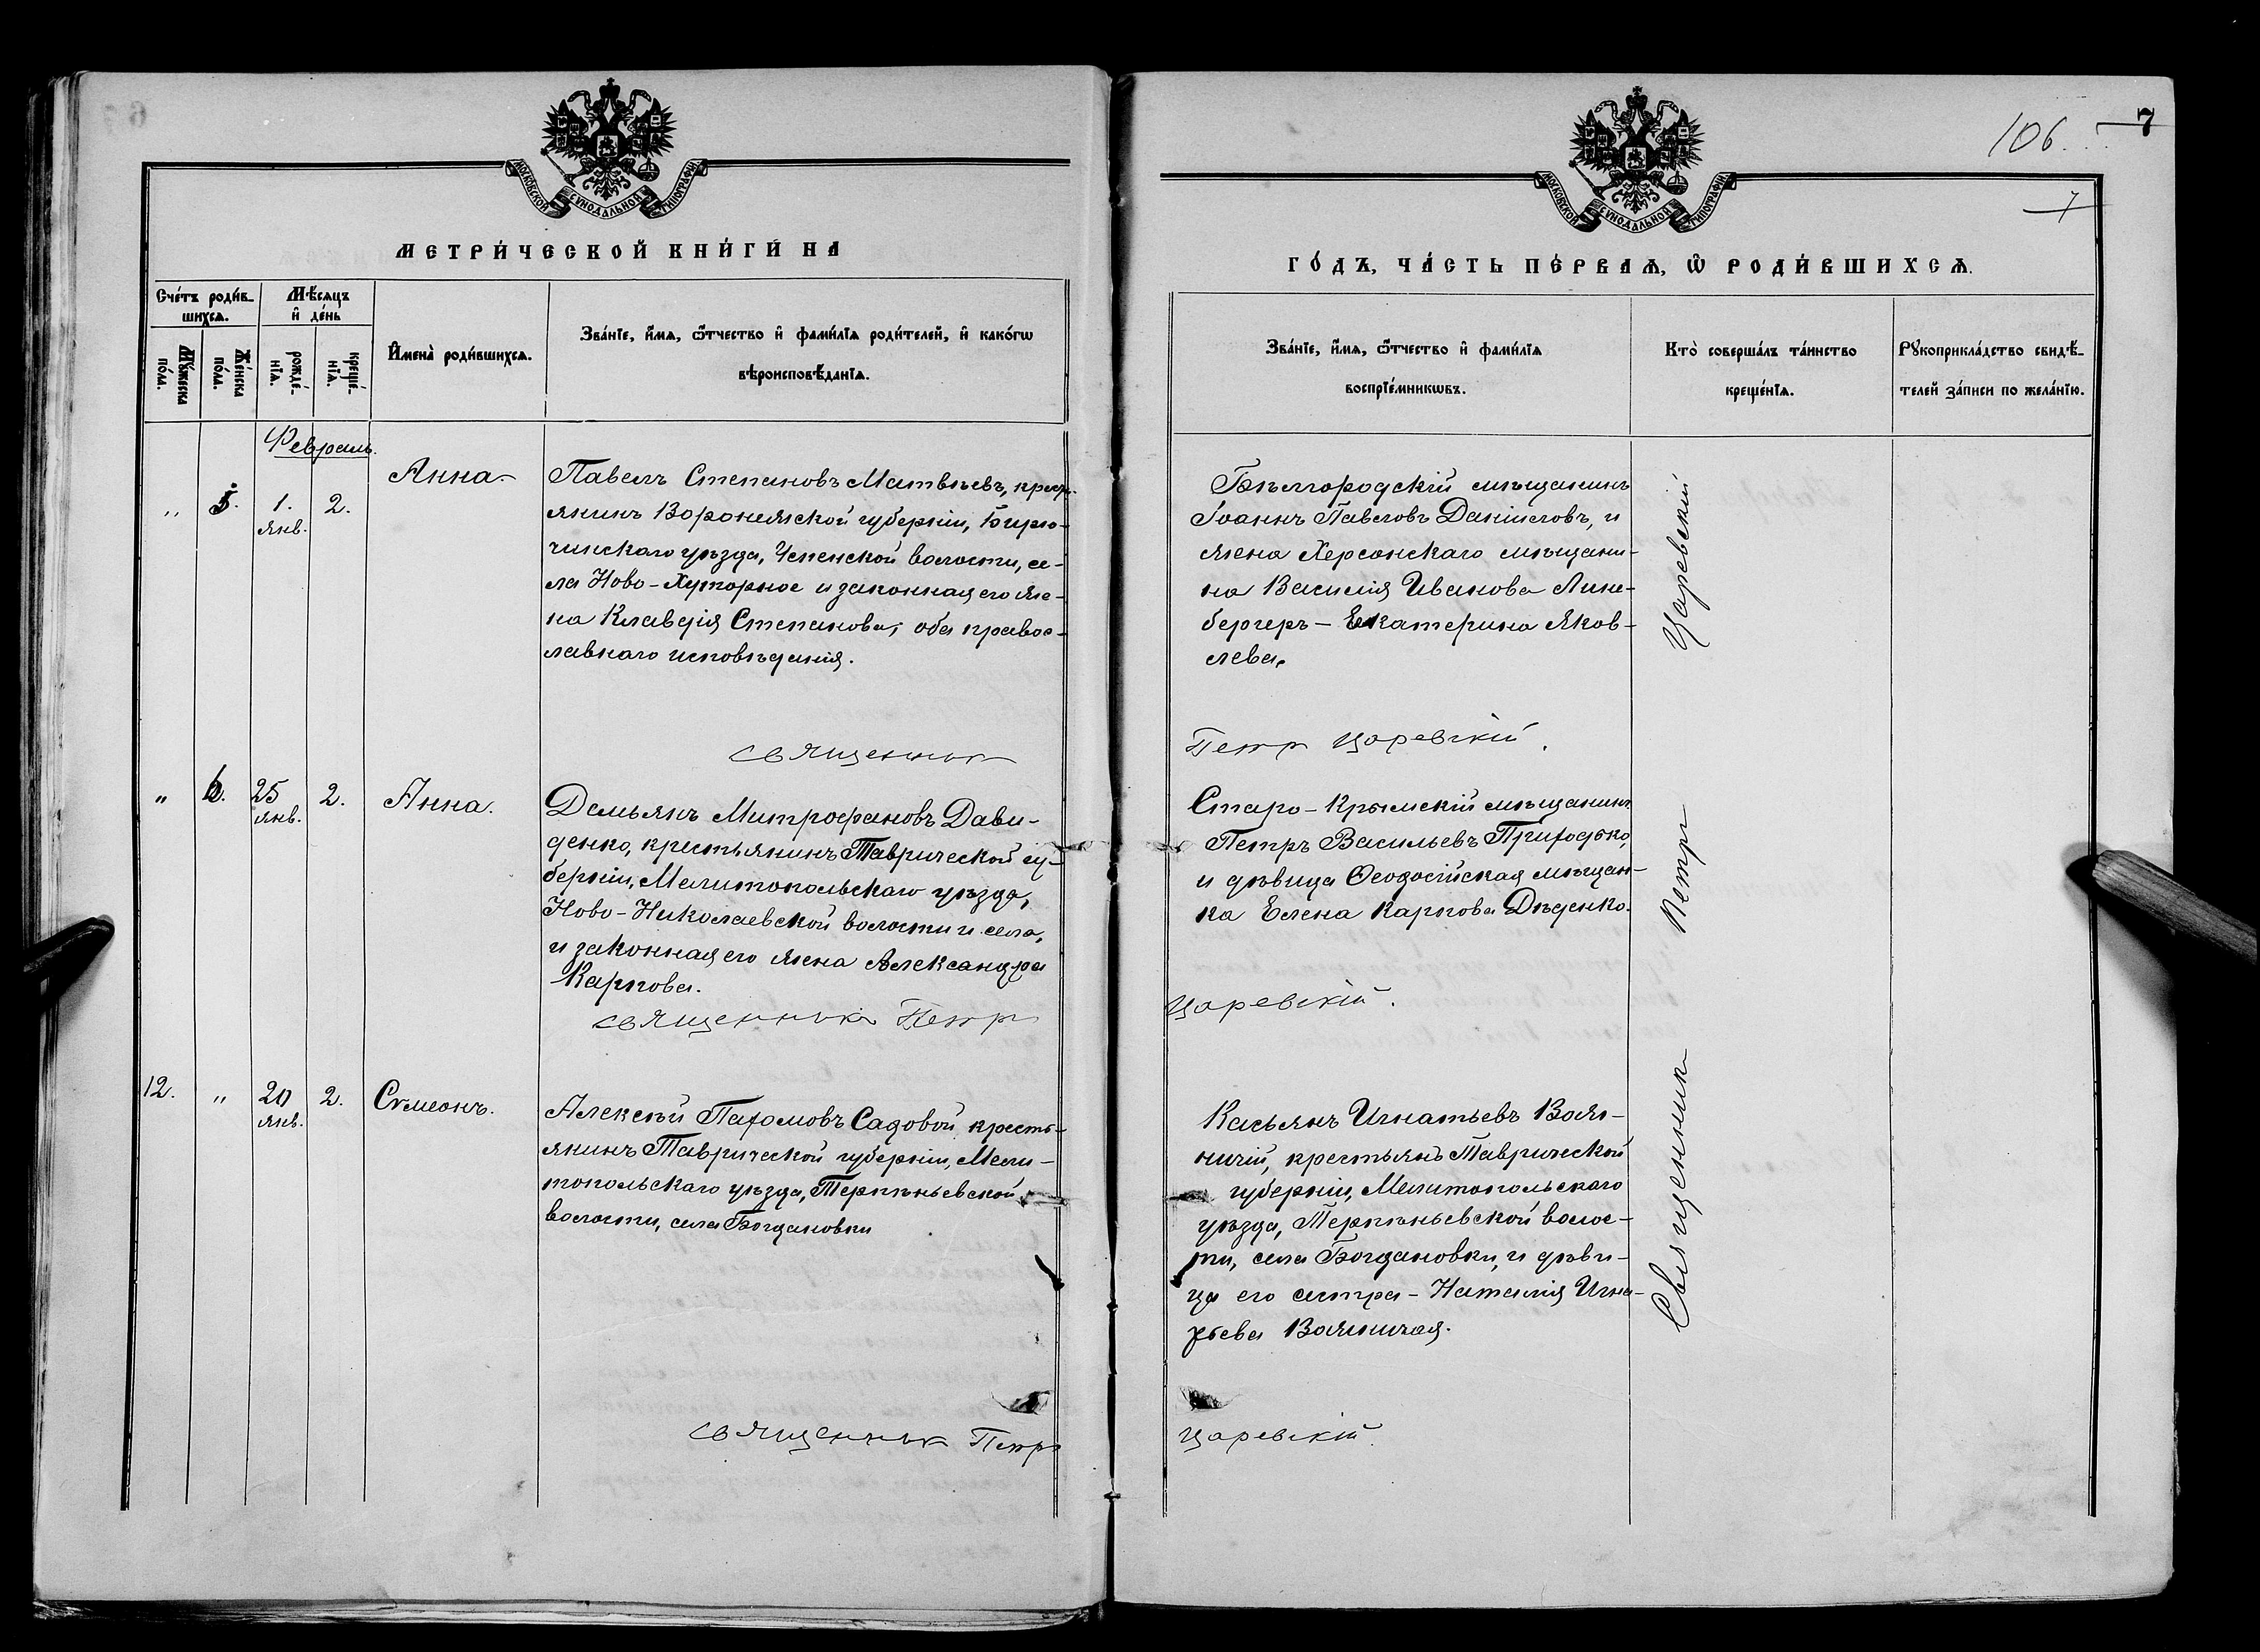 МОСКОВСКОЙ СѴНОДАЛЬНОЙ ТИПОГРАФІИ
МЕТРИ́ЧЕСКОЙ КНИ́ГИ НА
Сче́тъ роди́в-
шихсѧ.
Мѣ́сяцъ
и҆ де́нь
Мꙋ́жеска
по́ла.
Же́нска
по́ла.
рожде́-
нїѧ.
креще́-
нїѧ.
И҆мена̀ роди́вшихсѧ.
Зва́нїе, и҆́мѧ, ѻ҆́тчество и҆ фами́лїѧ роди́телей, и҆ како́гѡ
вѣроисповѣ́данїѧ.
Февраль.
,, 5. 1. янв. 2. Анна.
Павелъ Степановъ Матвѣевъ, крест-
янинъ Воронежской губерніи, Бирю-
чинскаго уѣзда, Успенской волости, се-
ла Ново-Хуторное и законная его же-
на Клавдія Степанова; оба правос-
лавнаго исповѣданія.
священник
,, 6. 25 янв. 2. Анна.
Демьянъ Митрофановъ Дави-
денко, крестьянинъ Таврической гу-
берніи, Мелитопольскаго уѣзда,
Ново-Николаевской волости и села,
и законная его жена Александра
Карпова.
священник Петр
12. ,, 20 янв. 2. Сѵмеонъ.
Алексѣй Пахомовъ Садовой, кресть-
янинъ Таврической губерніи, Мели-
топольскаго уѣзда, Терпѣньевской
волости, села Богдановки
священник Петр
106. 7
7
МОСКОВСКОЙ СѴНОДАЛЬНОЙ ТИПОГРАФІИ
ГО́ДЪ, ЧА́СТЬ ПЕ́РВАѦ, Ѡ҆ РОДИ́ВШИХСѦ.
Зва́нїе, и҆́мѧ, ѻ҆́тчество и҆ фами́лїѧ
воспрїе́мникѡвъ.
Кто̀ соверша́лъ та́инство
креще́нїѧ.
Рꙋкоприкла́дство свидѣ́-
телей за́писи по жела́нїю.
Бѣлгородскій мѣщанинъ
Іоаннъ Павловъ Даніиловъ, и
жена Херсонскаго мѣщани-
на Василія Иванова Лине-
бергеръ - Екатерина Яков-
лева.
Петр Царевскій.
Старо-Крымскій мѣщанинъ
Петръ Васильевъ Приходько,
и дѣвица Ѳеодосійская мѣщан-
ка Елена Карпова Дѣденко.
Царевскій.
Касьянъ Игнатьевъ Вояж-
ничій, крестьянъ Таврической
губерніи, Мелитопольскаго
уѣзда, Терпѣньевской волос-
ти, села Богдановки, и дѣви-
ца его сестра - Наталія Игна-
тьева
Царевскій.
Священник Петр Царевскій